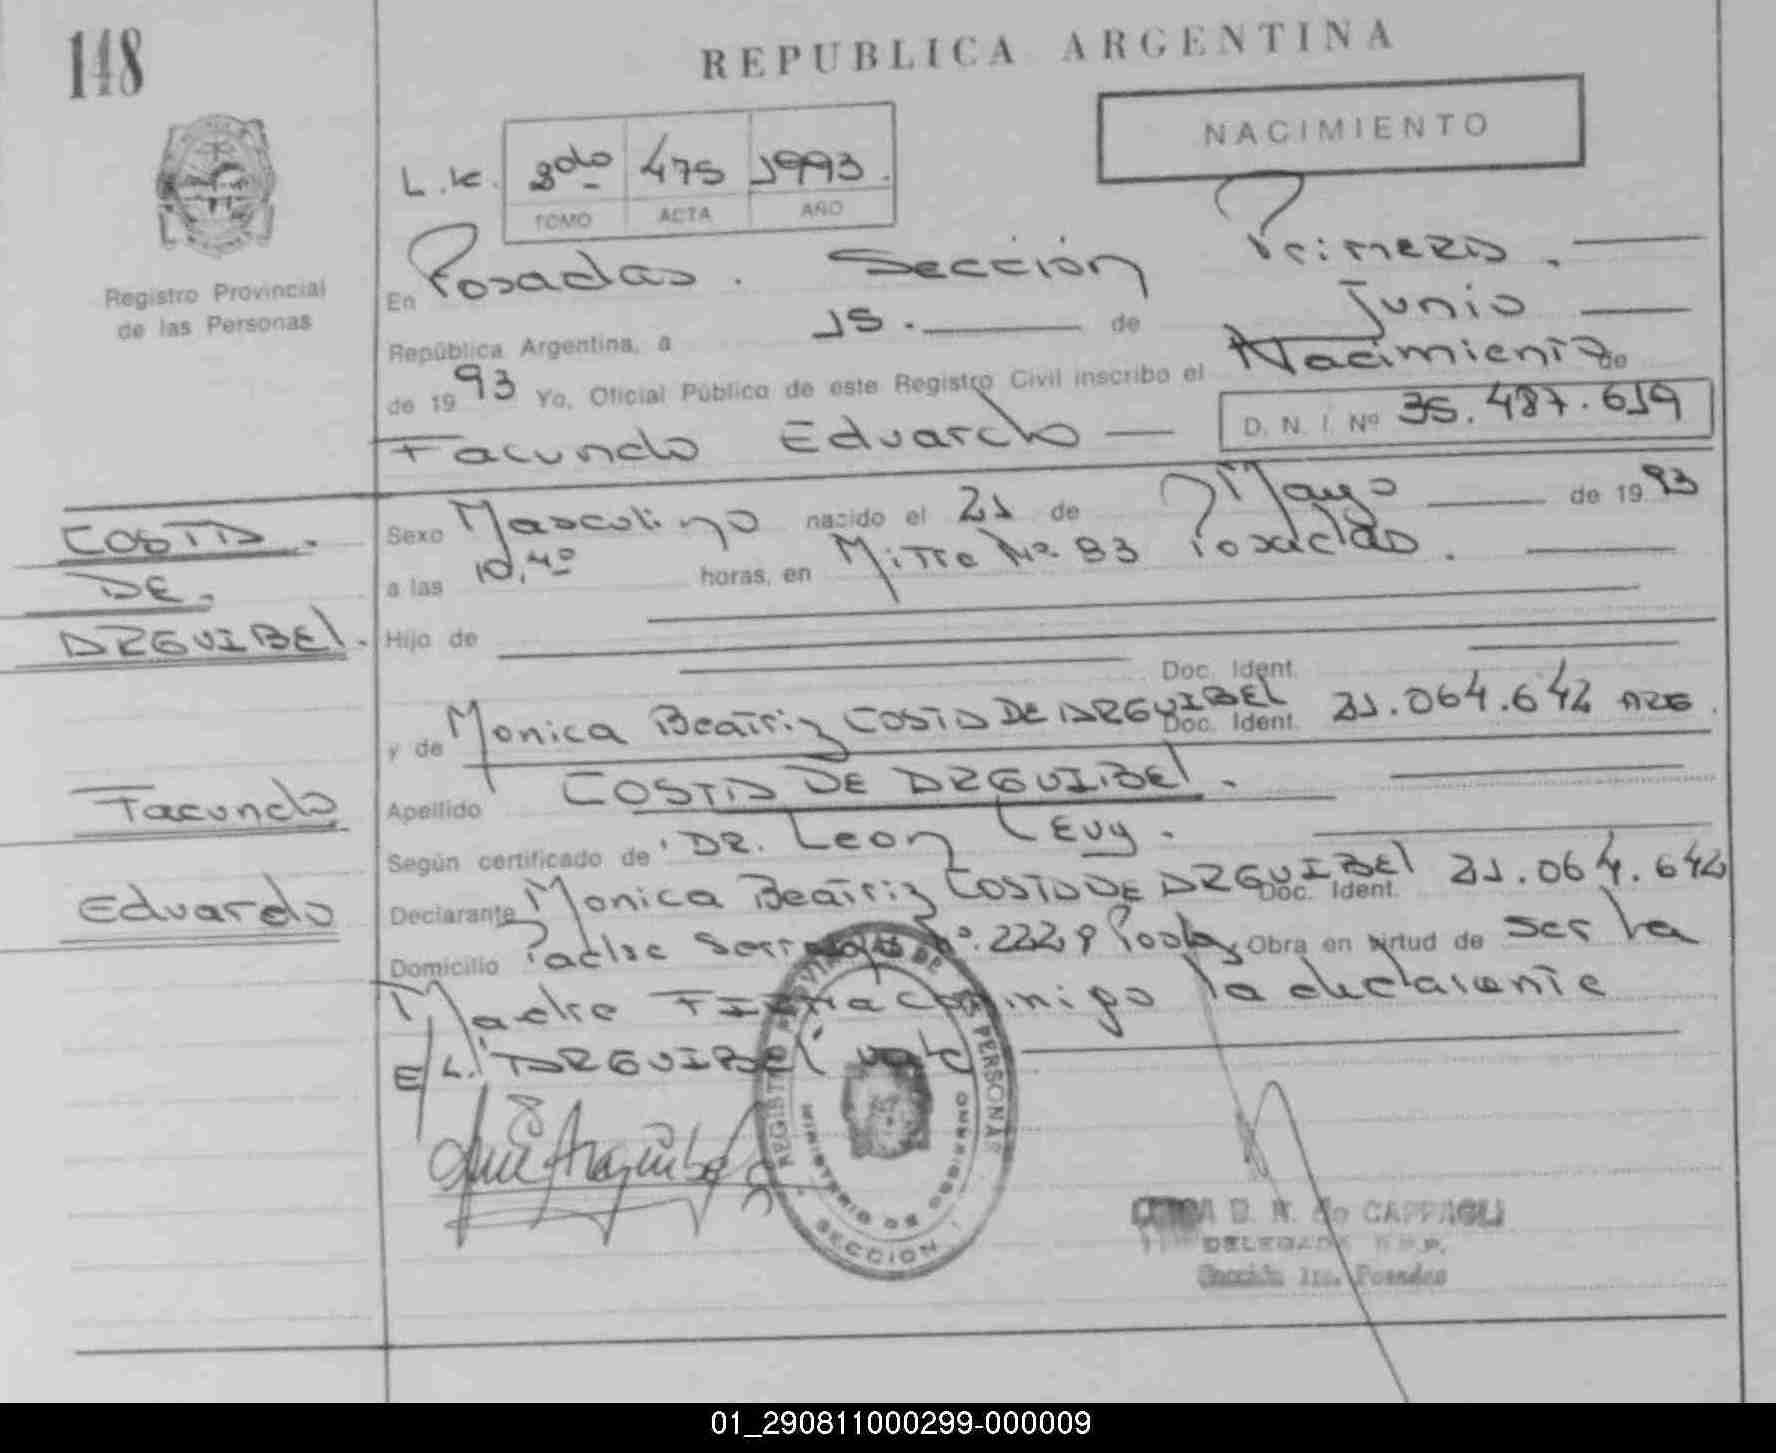 148
REPUBLICA ARGENTINA
NACIMIENTO
L.k. 3do 475 1993.
TOMO ACTA AÑO
Registro Provincial
de las Personas
En Posadas. Sección Primera.
República Argentina, a 15. de Junio
de 1993 Yo, Oficial Público de este Registro Civil inscribo el Nacimiento de
Facundo Eduardo — D. N. I. Nº 35.487.619
COSTA
DE
ARGUIBEL.
Sexo Masculino nacido el 21 de Mayo de 1993
a las 10,40 horas, en Mitre Nº 93 Posadas.
Hijo de
Doc. Ident.
y de Monica Beatriz COSTA DE ARGUIBEL Doc. Ident. 21.064.642 ARG.
Facundo
Eduardo
Apellido COSTA DE ARGUIBEL.
Según certificado de DR. Leon Levy.
Declarante Monica Beatriz COSTA DE ARGUIBEL Doc. Ident. 21.064.642
Domicilio Padre Serrano Nº. 2229 Posdas Obra en virtud de ser la
Madre Firma conmigo la declarante
E/L. ARGUIBEL vale
REGISTRO PROVINCIAL DE LAS PERSONAS
MINISTERIO DE GOBIERNO
SECCION
de CAPPAGLI
DELEGADA R.P.P.
Sección 1ra. Posadas
01_290811000299-000009